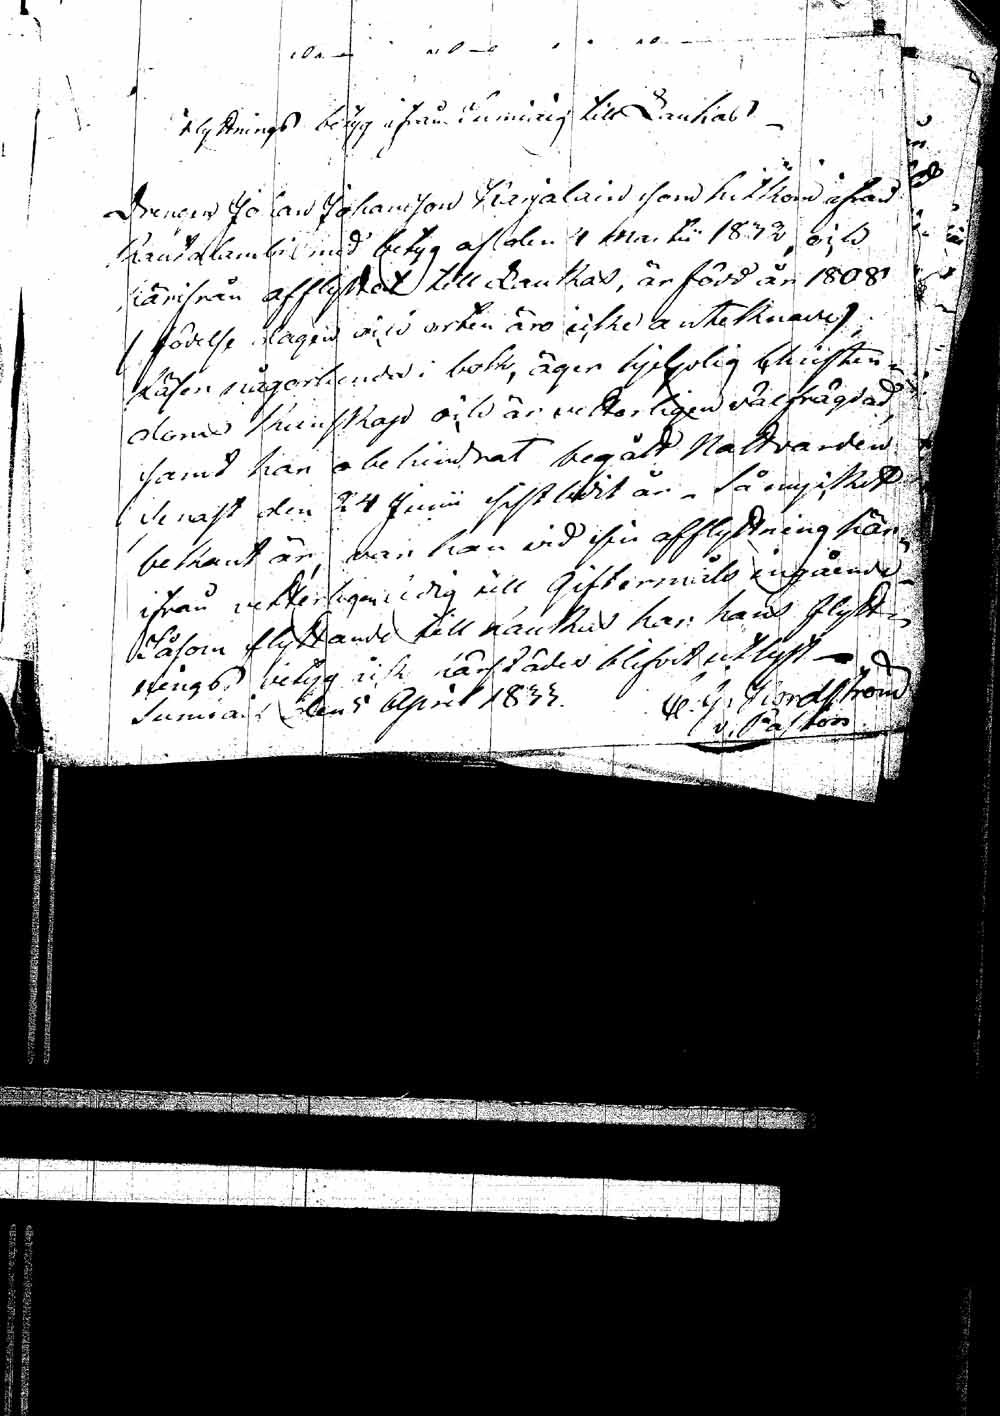 Flyttnings betyg ifrån Sumiais till Laukas
Drengen Johan Johansson Karjalain som hitkom ifrån
Rautalambi med betyg af den 4 Martii 1832, och
härifrån afflyttat till Laukas, är född år 1808
(födelse dagen och orten äro icke antecknade),
läser någorlunda i bok, äger hjelplig Christen-
doms kunskap och är vetterligen välfrägdad,
samt har obehindrat begått Nattvarden
senast den 24 Junii sistledit år. Så mycket
bekant är, var han vid sin afflyttning här-
ifrån vetterligen ledig till Giftermåls ingående.
Såsom flyttande till Laukas har hans flytt-
nings betyg härstädes blifvit utlyst.
Sumiais den 5 April 1833.
Nordström
v. Pastor